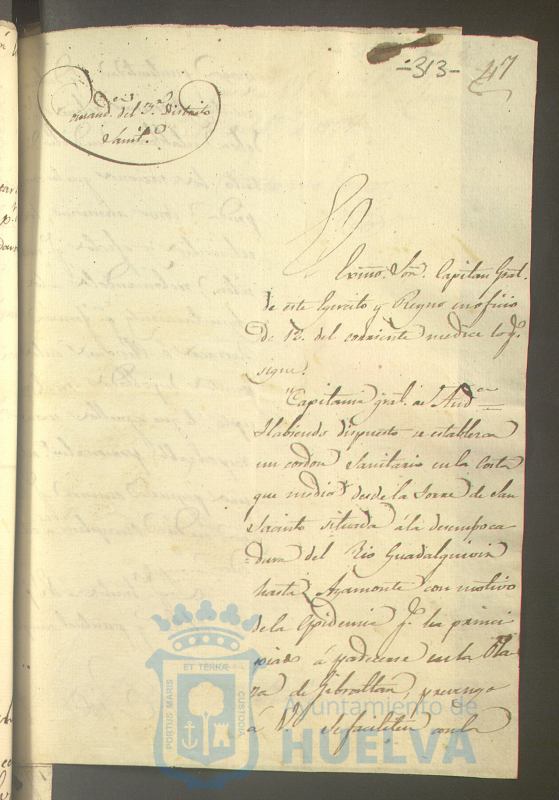 -313- 47
Comand.^a del 3.^r Distrito
Sanit.^o
El Exmo. Sõr. Capitan Gral.
de este Egercito y Reyno en oficio
de 12. del corriente me dice lo q.^e
sigue.
"Capitania gral. de And.^a
Habiendo dispuesto se establezca
un cordon Sanitario en la Costa
que media desde la Torre de San
Jacinto situada á la desemboca
dura del Rio Guadalquivir
hasta Ayamonte con motivo
de la Epidemia q.^e ha princi
piado á padecerse en la Pla
za de Gibraltar, prevengo
á V. se faciliten con la
PORTUS MARIS ET TERRÆ CUSTODIA
Ayuntamiento de
HUELVA